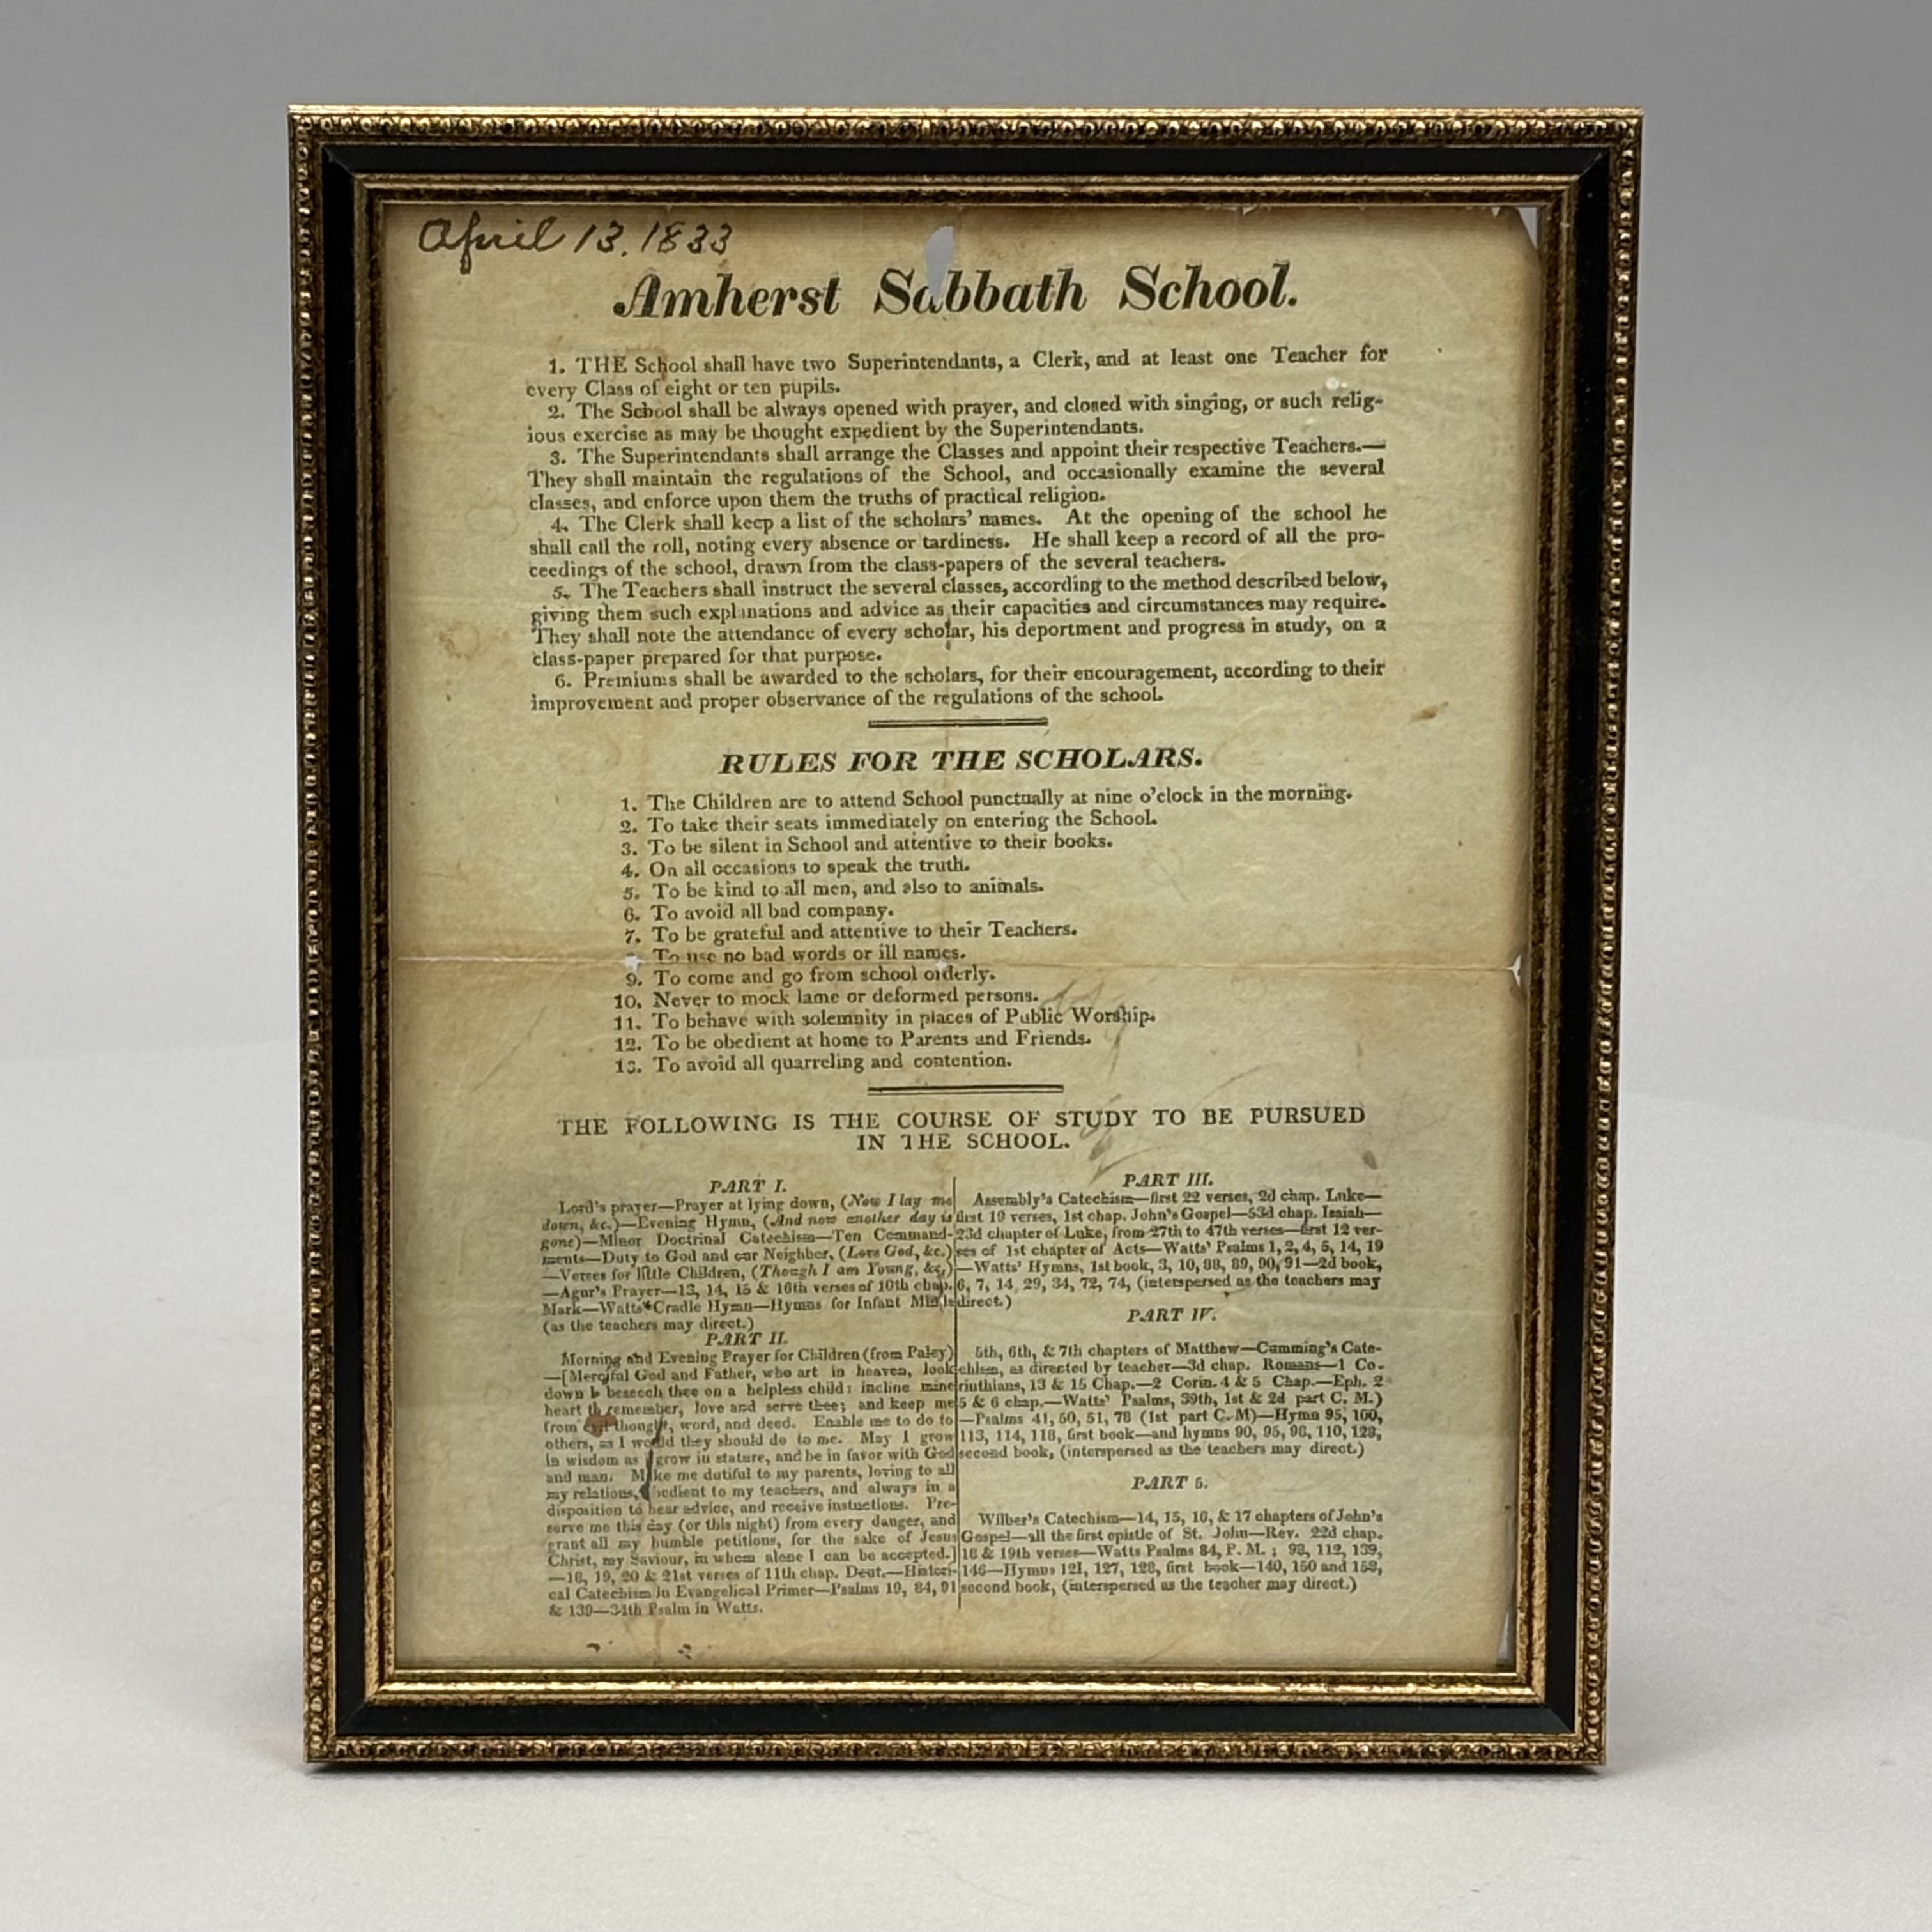 April 13, 1833
Amherst Sabbath School.
1. THE School shall have two Superintendants, a Clerk, and at least one Teacher for
every Class of eight or ten pupils.
2. The School shall be always opened with prayer, and closed with singing, or such relig-
ious exercise as may be thought expedient by the Superintendants.
3. The Superintendants shall arrange the Classes and appoint their respective Teachers.—
They shall maintain the regulations of the School, and occasionally examine the several
classes, and enforce upon them the truths of practical religion.
4. The Clerk shall keep a list of the scholars' names. At the opening of the school he
shall call the roll, noting every absence or tardiness. He shall keep a record of all the pro-
ceedings of the school, drawn from the class-papers of the several teachers.
5. The Teachers shall instruct the several classes, according to the method described below,
giving them such explanations and advice as their capacities and circumstances may require.
They shall note the attendance of every scholar, his deportment and progress in study, on a
class-paper prepared for that purpose.
6. Premiums shall be awarded to the scholars, for their encouragement, according to their
improvement and proper observance of the regulations of the school.
RULES FOR THE SCHOLARS.
1. The Children are to attend School punctually at nine o'clock in the morning.
2. To take their seats immediately on entering the School.
3. To be silent in School and attentive to their books.
4. On all occasions to speak the truth.
5. To be kind to all men, and also to animals.
6. To avoid all bad company.
7. To be grateful and attentive to their Teachers.
To use no bad words or ill names.
9. To come and go from school orderly.
10. Never to mock lame or deformed persons.
11. To behave with solemnity in places of Public Worship.
12. To be obedient at home to Parents and Friends.
13. To avoid all quarreling and contention.
THE FOLLOWING IS THE COURSE OF STUDY TO BE PURSUED
IN THE SCHOOL.
PART I.
Lord's prayer—Prayer at lying down, (Now I lay me
down, &c.)—Evening Hymn, (And now another day is
gone)—Minor Doctrinal Catechism—Ten Command-
ments—Duty to God and our Neighbor, (Love God, &c.)
—Verses for little Children, (Though I am Young, &c,)
—Agur's Prayer—13, 14, 15 & 16th verses of 10th chap.
Mark—Watts' Cradle Hymn—Hymns for Infant Minds
(as the teachers may direct.)
PART II.
Morning and Evening Prayer for Children (from Paley)
—[Merciful God and Father, who art in heaven, look
down I beseech thee on a helpless child: incline mine
heart to remember, love and serve thee; and keep me
from evil thought, word, and deed. Enable me to do to
others, as I would they should do to me. May I grow
in wisdom as I grow in stature, and be in favor with God
and man. Make me dutiful to my parents, loving to all
my relations, obedient to my teachers, and always in a
disposition to hear advice, and receive instuctions. Pre-
serve me this day (or this night) from every danger, and
grant all my humble petitions, for the sake of Jesus
Christ, my Saviour, in whom alone I can be accepted.]
—18, 19, 20 & 21st verses of 11th chap. Deut.—Histori-
cal Catechism in Evangelical Primer—Psalms 19, 84, 91
& 139—34th Psalm in Watts.
PART III.
Assembly's Catechism—first 22 verses, 2d chap. Luke—
first 19 verses, 1st chap. John's Gospel—53d chap. Isaiah—
23d chapter of Luke, from 27th to 47th verses—first 12 ver-
ses of 1st chapter of Acts—Watts' Psalms 1, 2, 4, 5, 14, 19
—Watts' Hymns, 1st book, 3, 10, 88, 89, 90, 91—2d book,
6, 7, 14, 29, 34, 72, 74, (interspersed as the teachers may
direct.)
PART IV.
5th, 6th, & 7th chapters of Matthew—Cumming's Cate-
chism, as directed by teacher—3d chap. Romans—1 Co-
rinthians, 13 & 15 Chap.—2 Corin. 4 & 5 Chap.—Eph. 2
5 & 6 chap.—Watts' Psalms, 39th, 1st & 2d part C. M.)
—Psalms 41, 50, 51, 78 (1st part C. M)—Hymn 95, 100,
113, 114, 118, first book—and hymns 90, 95, 98, 110, 128,
second book, (interspersed as the teachers may direct.)
PART 5.
Wilber's Catechism—14, 15, 16, & 17 chapters of John's
Gospel—all the first epistle of St. John—Rev. 22d chap.
18 & 19th verses—Watts Psalms 84, P. M.; 93, 112, 139,
146—Hymns 121, 127, 128, first book—140, 150 and 158,
second book, (interspersed as the teacher may direct.)